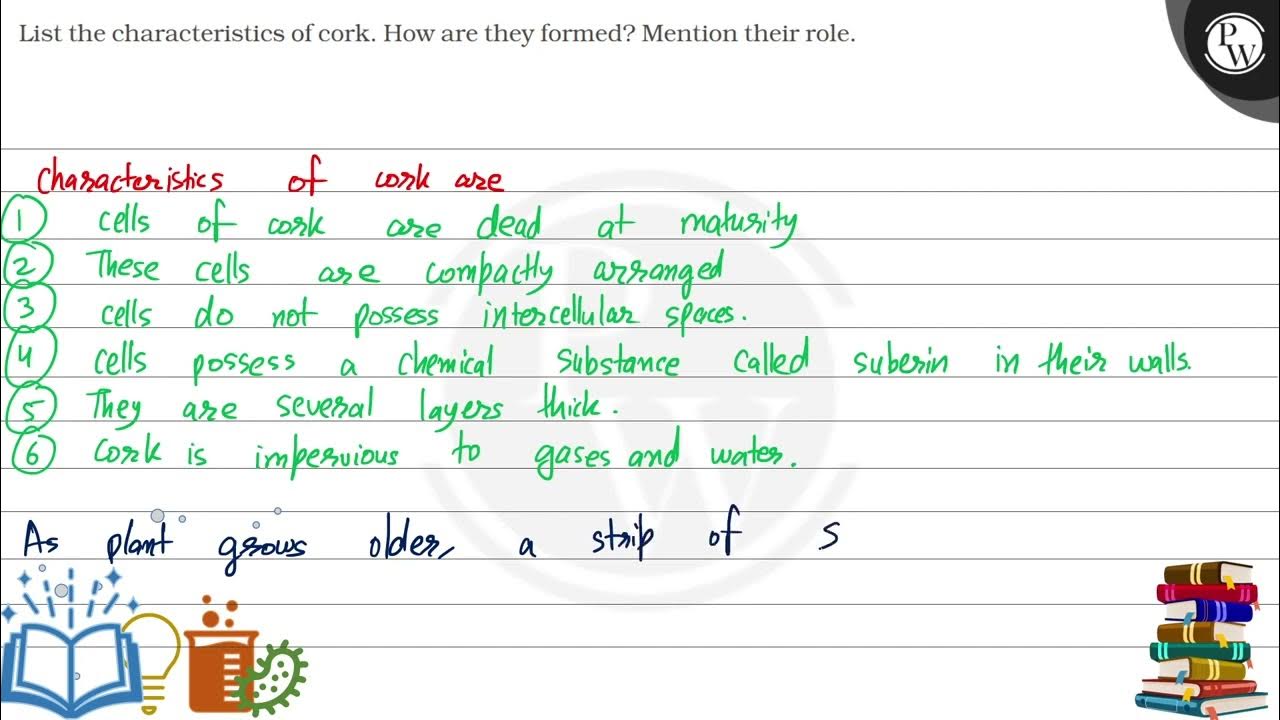 List the characteristics of cork. How are they formed? Mention their role.
PW
characteristics of cork are
1 cells of cork are dead at maturity
2 These cells are compactly arranged
3 cells do not possess intercellular spaces.
4 cells possess a chemical substance called suberin in their walls.
5 They are several layers thick.
6 cork is impervious to gases and water.
As plant grows older, a strip of s